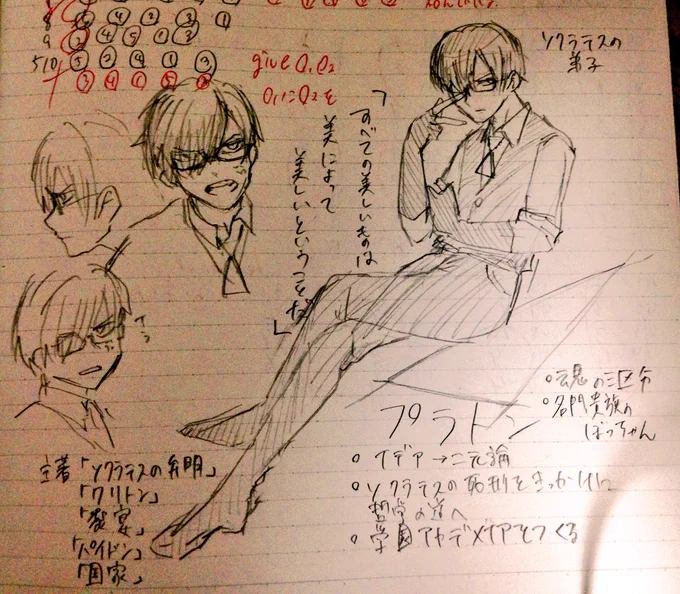 8 ⑤ ④ ② ③ ①
9 ② ④ ⑤ ① ③
5/10 ⑤ ② ④ ① ③
③ ④ ① ⑤
give O₁O₂
O₁にO₂を
ソクラテスの
弟子
「すべての美しいものは
美によって
美しいということだ」
プラトン
○魂の三区分
○名門貴族の
ぼっちゃん
○イデア→二元論
○ソクラテスの死刑をきっかけに
哲学の道へ
○学園アカデメイアをつくる
主著「ソクラテスの弁明」
「クリトン」
「饗宴」
「パイドン」
「国家」